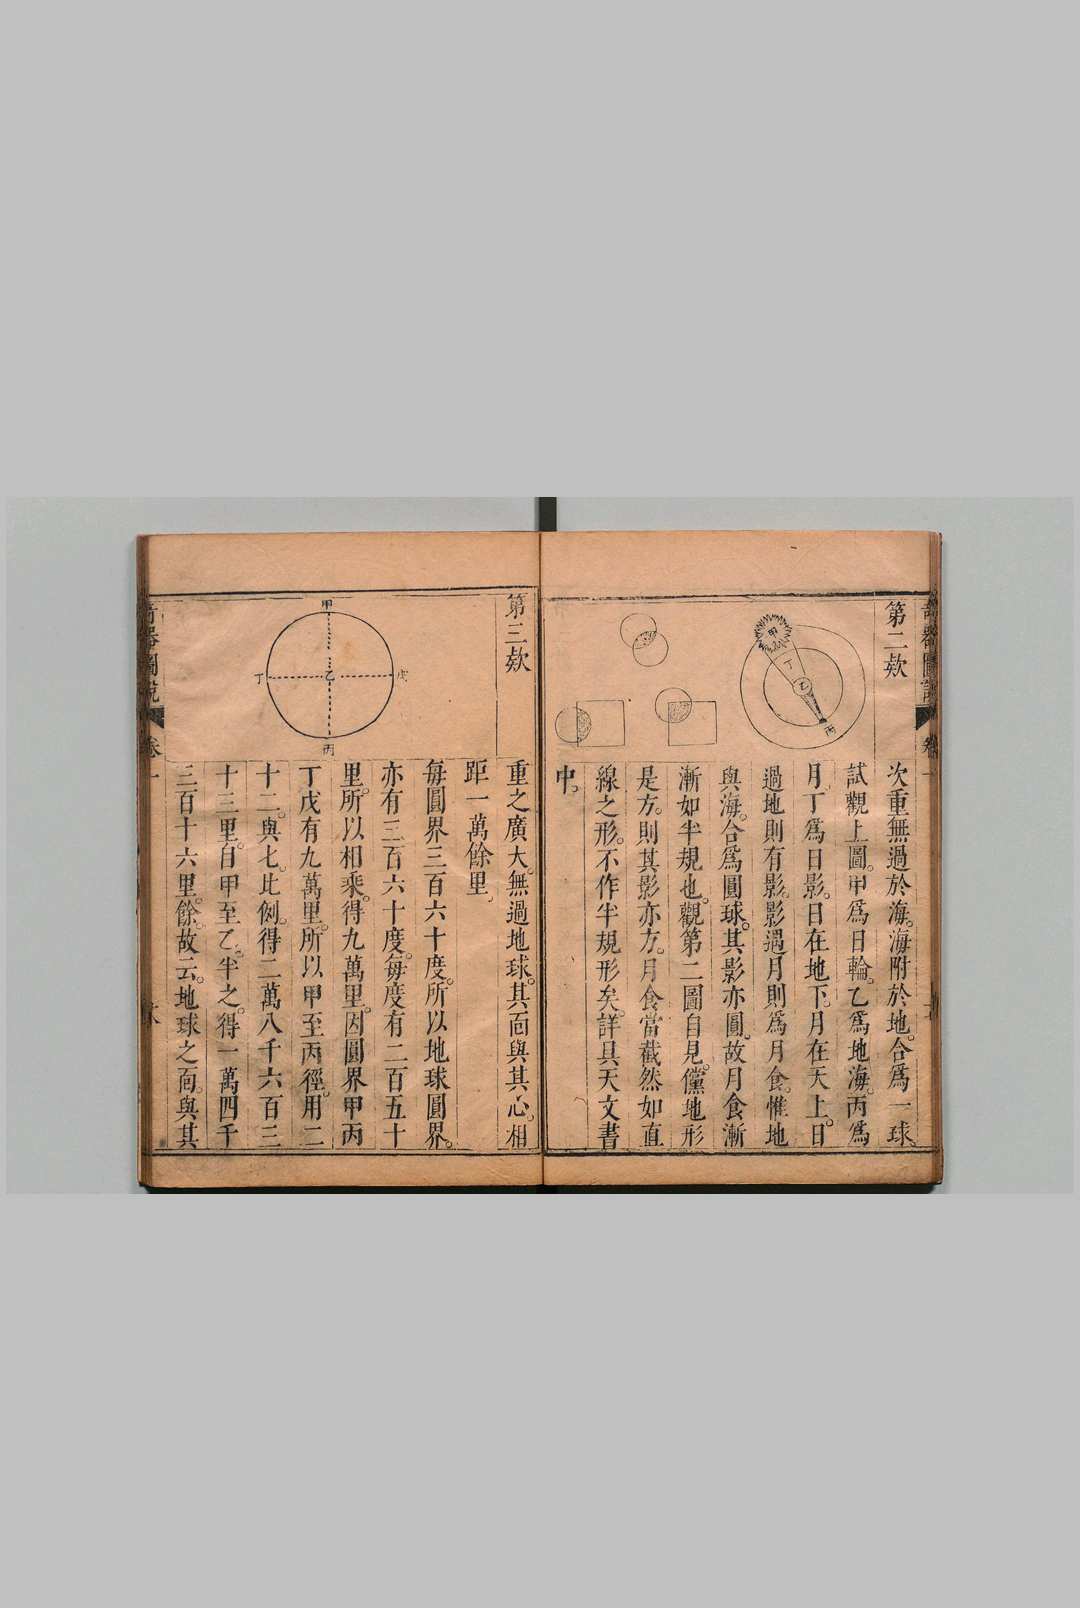 第二欵
甲
丁
乙
丙
次重無過於海。海附於地。合爲一球。
試觀上圖。甲爲日輪。乙爲地海。丙爲
月。丁爲日影。日在地下。月在天上。日
過地則有影。影遇月則爲月食。惟地
與海。合爲圓球。其影亦圓。故月食漸
漸如半規也。觀第二圖自見。儻地形
是方。則其影亦方。月食當截然如直
線之形。不作半規形矣。詳具天文書
中。
第三欵
甲
丁
乙
戊
丙
重之廣大。無過地球。其面與其心。相
距一萬餘里。
每圓界三百六十度。所以地球圓界。
亦有三百六十度。每度有二百五十
里。所以相乘。得九萬里。因圓界甲丙
丁戊有九萬里。所以甲至丙徑。用二
十二。與七。比例。得二萬八千六百三
十三里。自甲至乙。半之。得一萬四千
三百十六里。餘。故云。地球之面。與其
奇器圖說
卷一